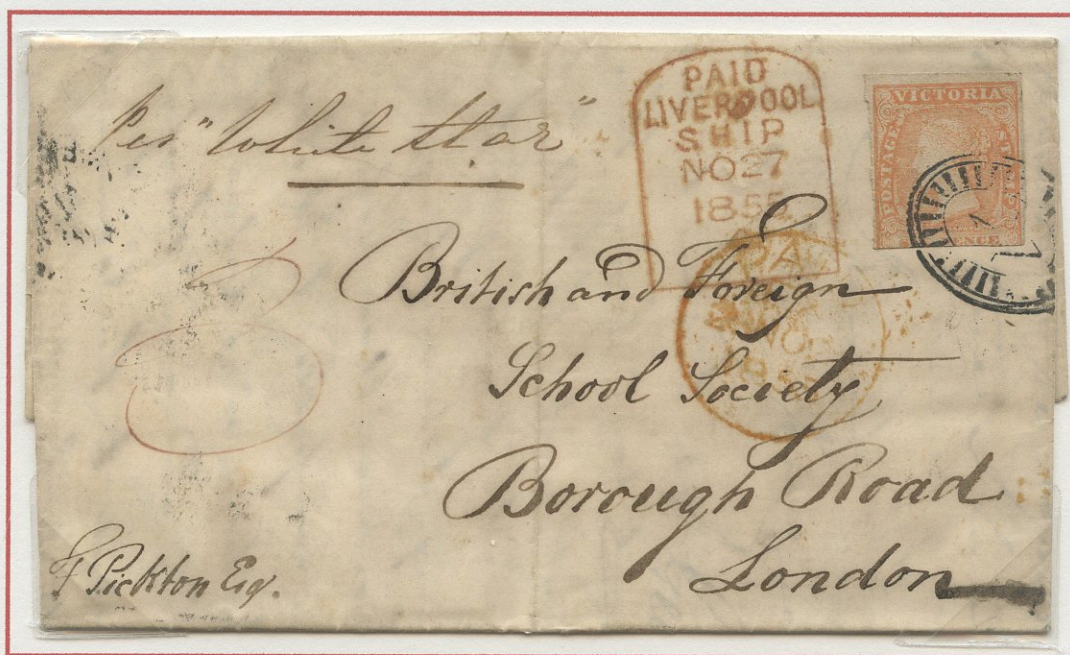 Per "White Star"
PAID
LIVERPOOL
SHIP
NO27
1855
VICTORIA
POSTAGE
STAMP
PENCE
PAID
NO
British and Foreign
School Society
Borough Road
London
F Pickton Esq.
8